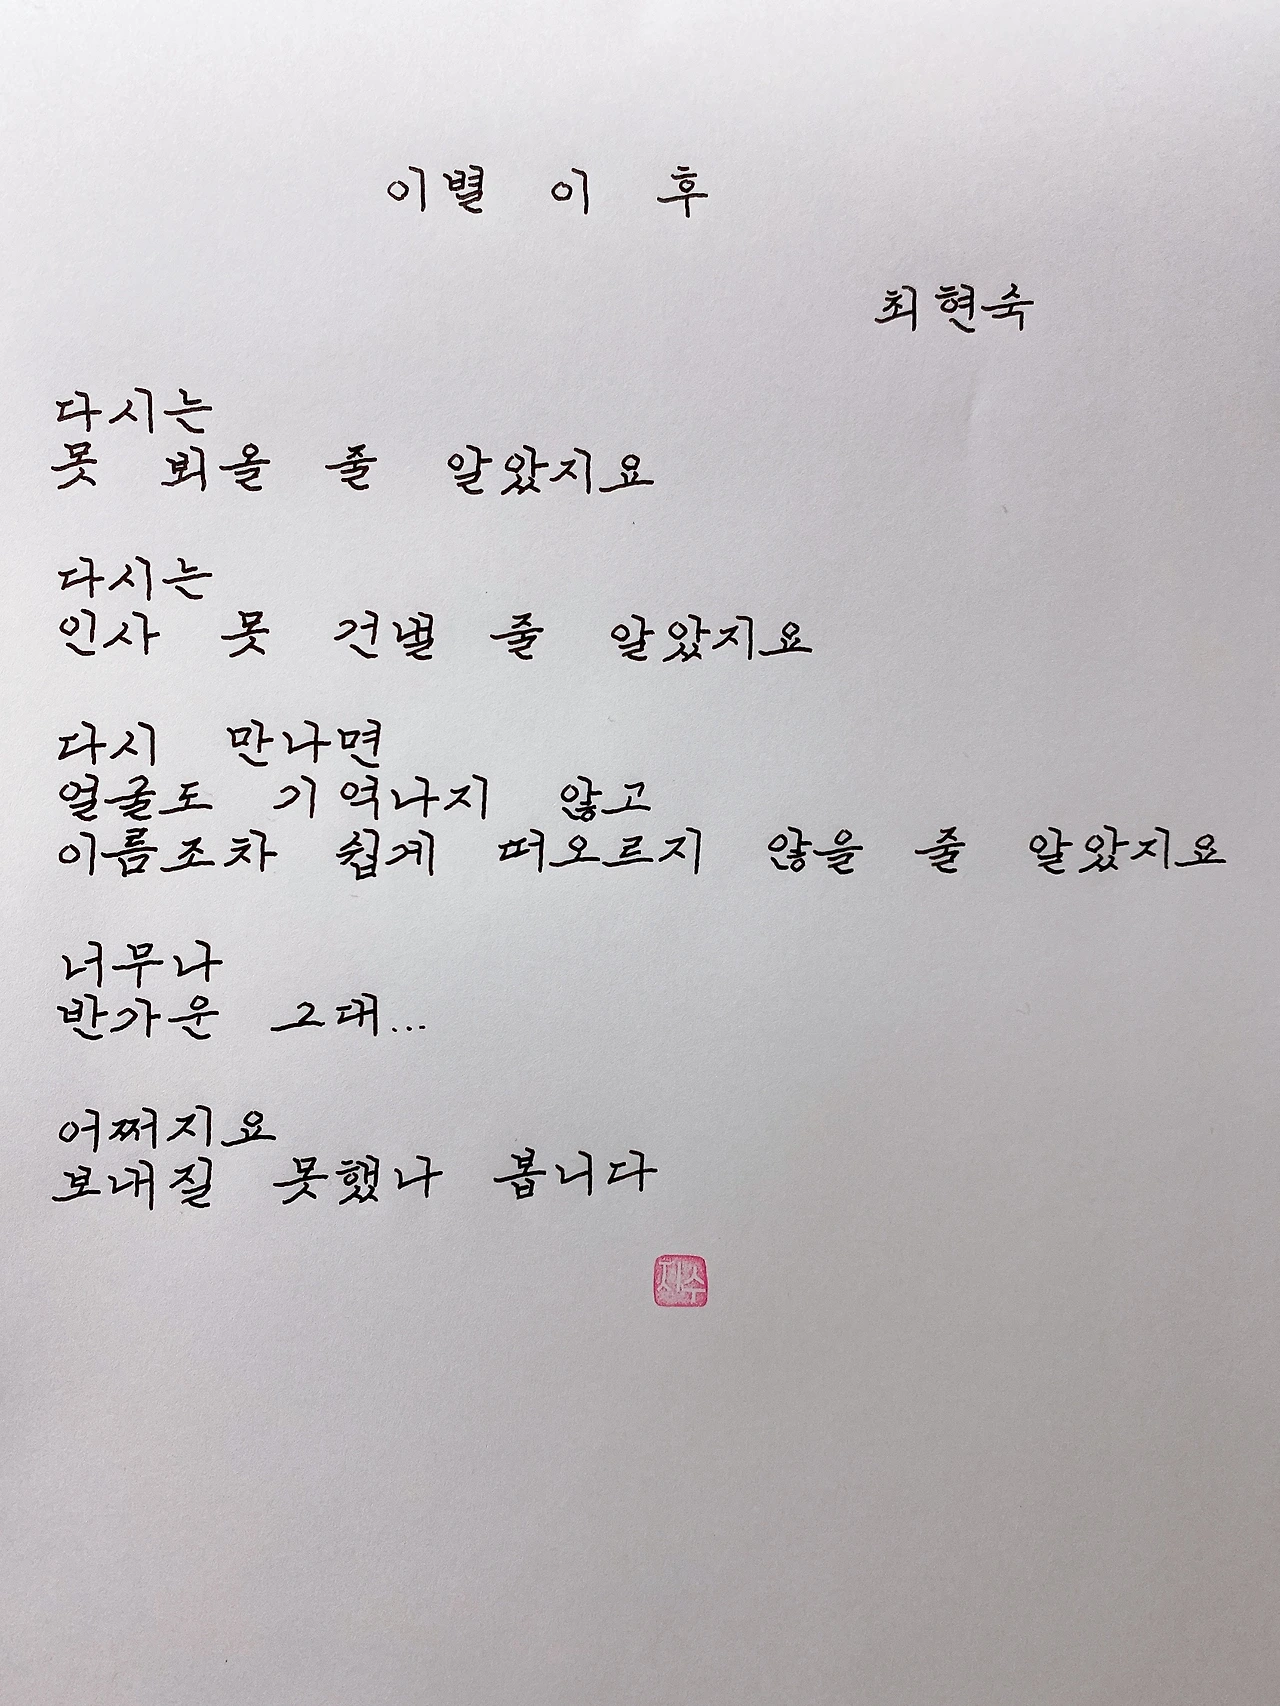 이별 이 후
최현숙
다시는
못 뵈올 줄 알았지요
다시는
인사 못 건낼 줄 알았지요
다시 만나면
얼굴도 기억나지 않고
이름조차 쉽게 떠오르지 않을 줄 알았지요
너무나
반가운 그대...
어쩌지요
보내질 못했나 봅니다